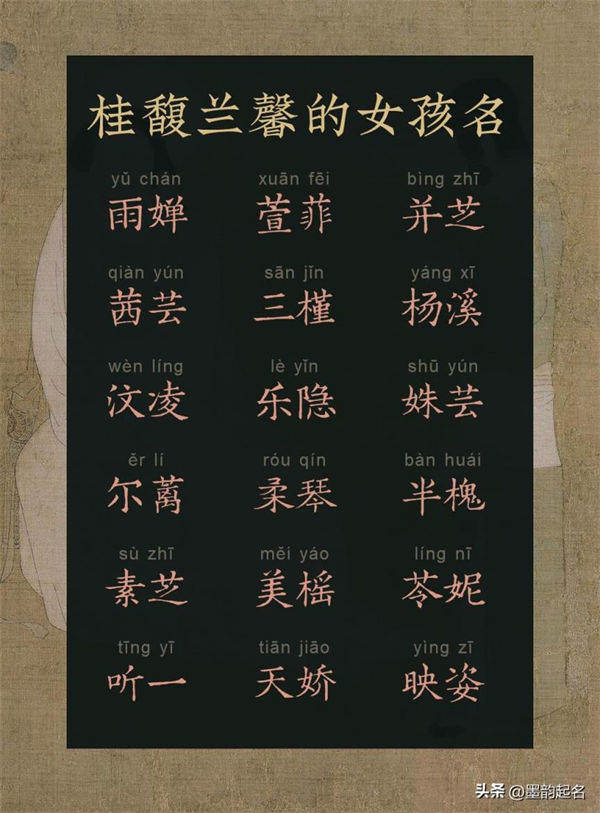 桂馥兰馨的女孩名
yǔ chán xuān fēi bìng zhī
雨婵 萱菲 并芝
qiàn yún sān jǐn yáng xī
茜芸 三槿 杨溪
wèn líng lè yǐn shū yún
汶凌 乐隐 姝芸
ěr lí róu qín bàn huái
尔蓠 柔琴 半槐
sù zhī měi yáo líng nī
素芝 美榣 苓妮
tīng yī tiān jiāo yìng zī
听一 天娇 映姿
头条 @墨韵起名